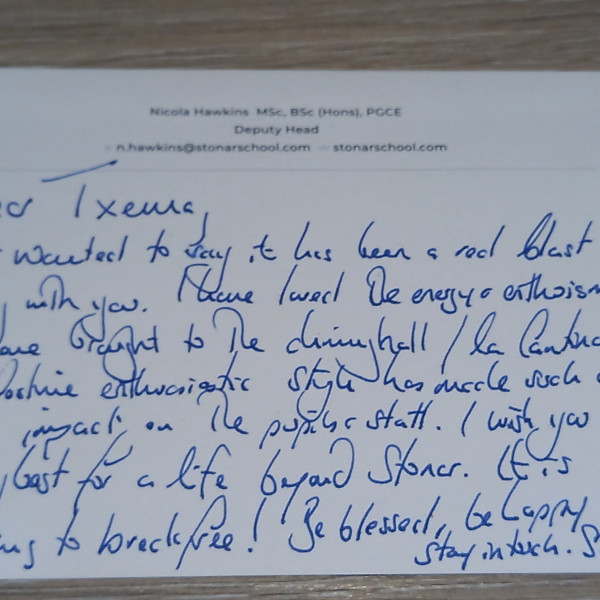 Nicola Hawkins MSc, BSc (Hons), PGCE
Deputy Head
n.hawkins@stonarschool.com stonarschool.com
Txema,
wanted to say it has been a real blast
with you. I have loved the energy & enthusiasm
brought to the dining hall / la Cantina
enthusiastic style has made such a
impact on the pupils & staff. I wish you
best for a life beyond Stonar. It is
to break free! Be blessed, be happy
stay in touch.